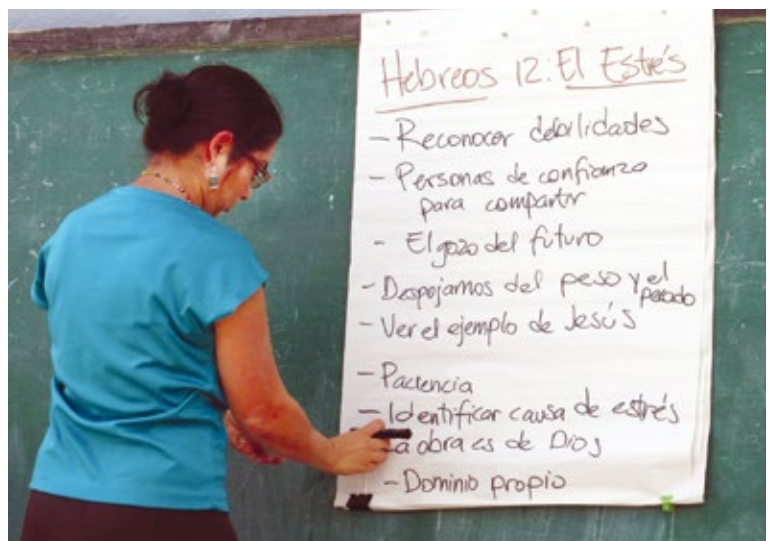 Hebreos 12: El Estrés
- Reconocer debilidades
- Personas de confianza
para compartir
- El gozo del futuro
- Despojarnos del peso y el
pecado
- Ver el ejemplo de Jesús
- Paciencia
- Identificar causa de estrés
La obra es de Dios
- Dominio propio